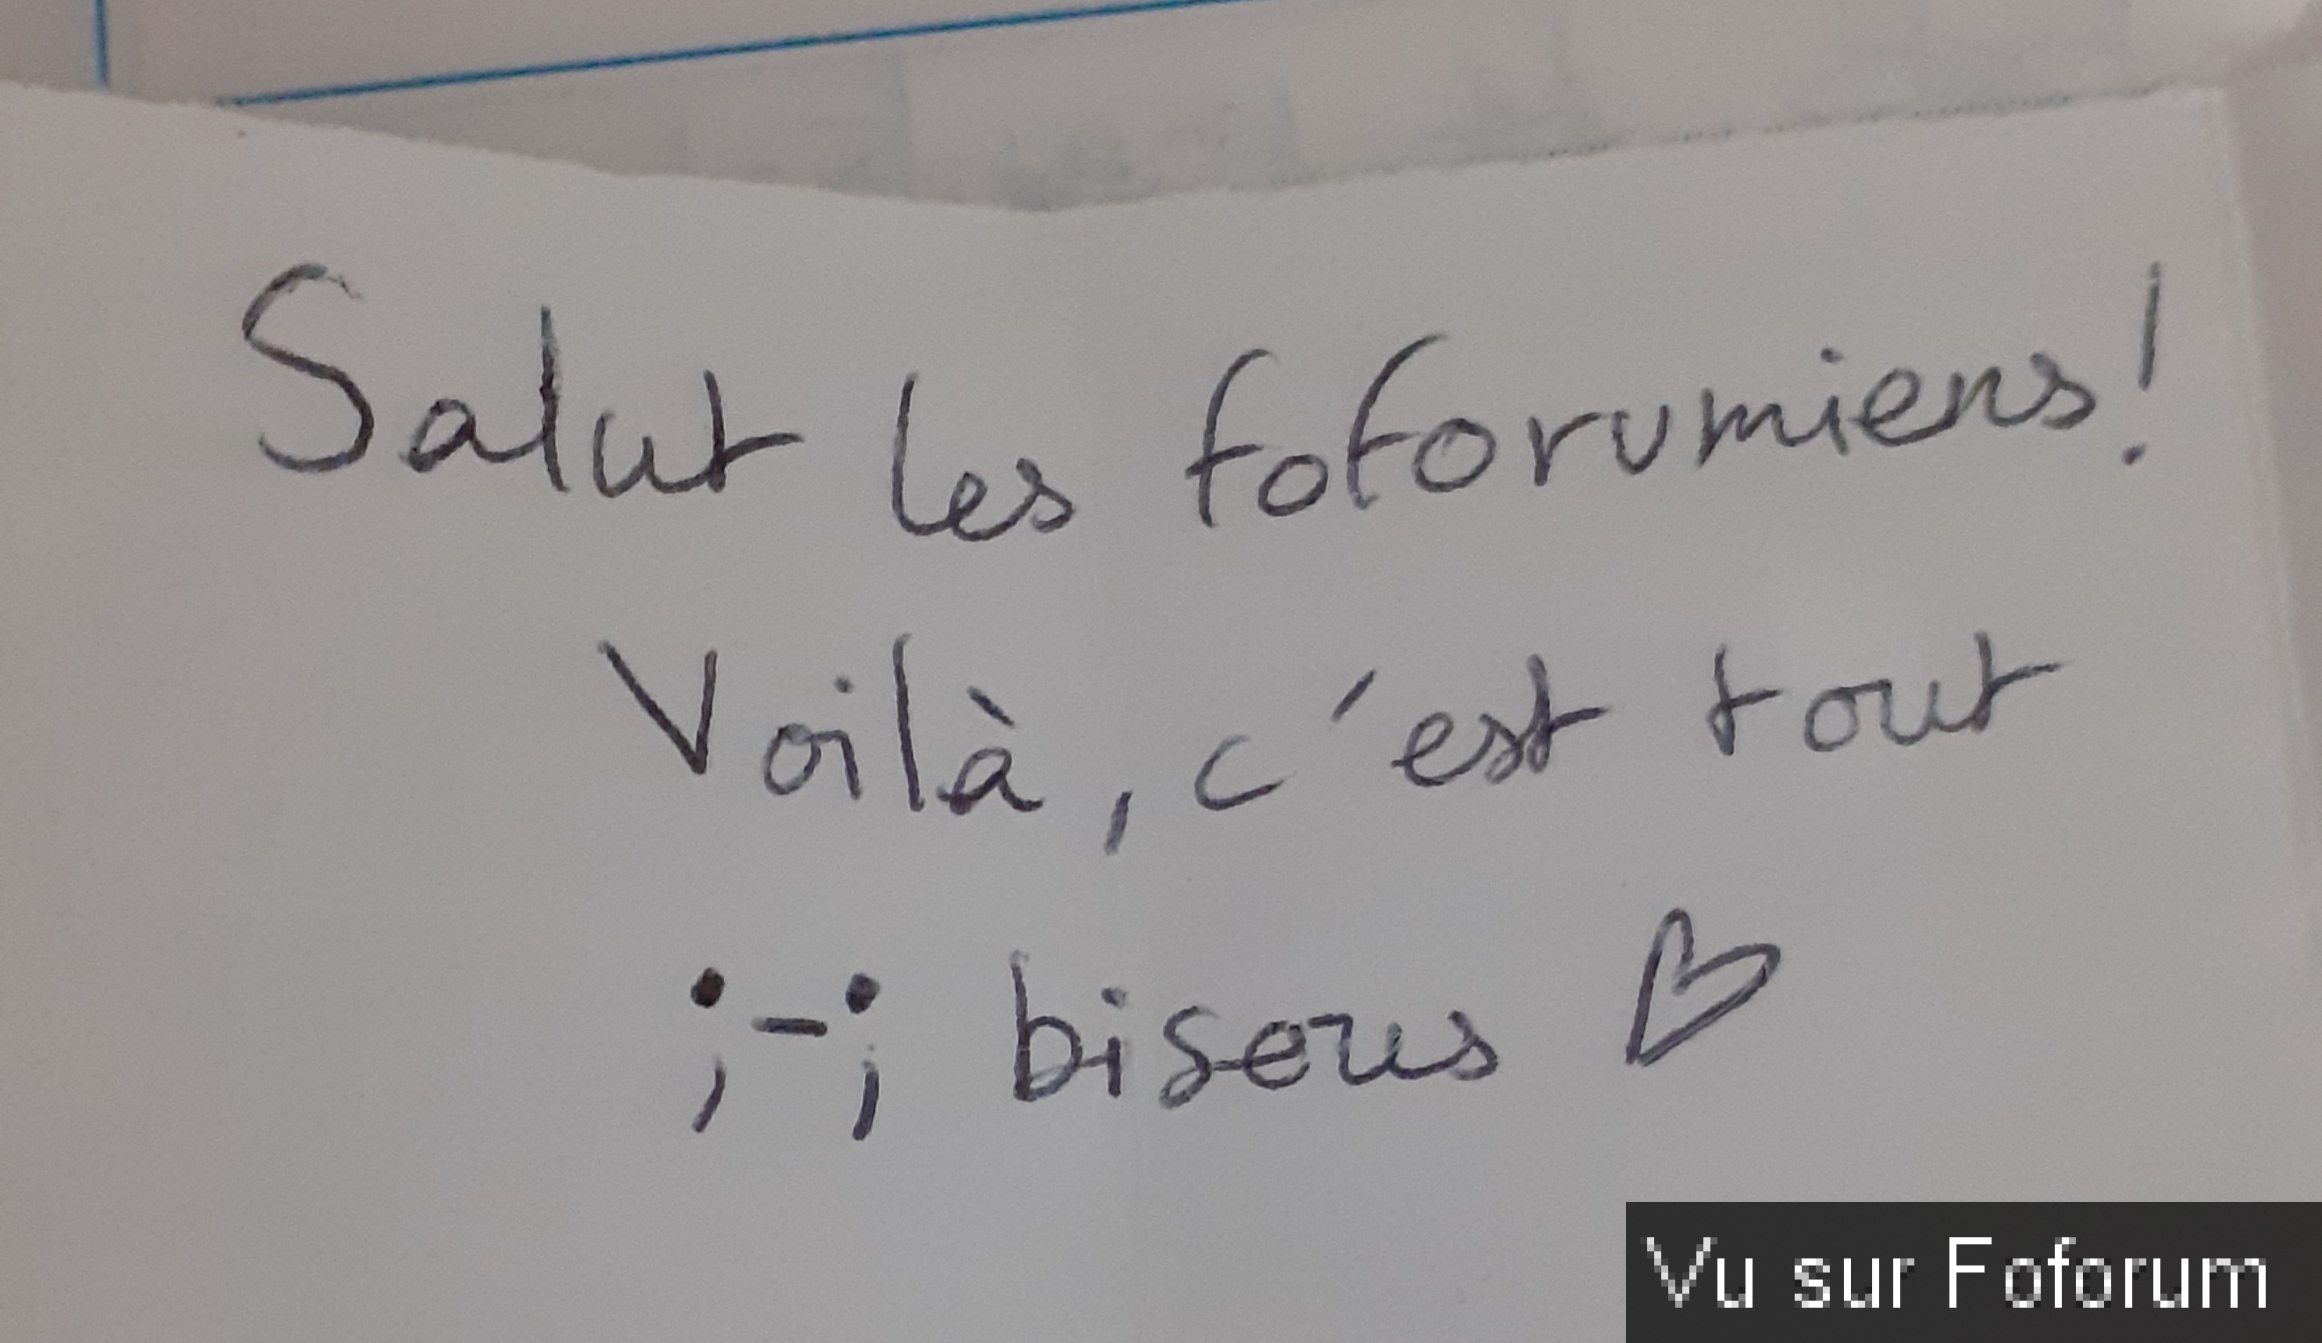 Salut les foforumiens !
Voilà, c'est tout
;-; bisous ♡
Vu sur Foforum